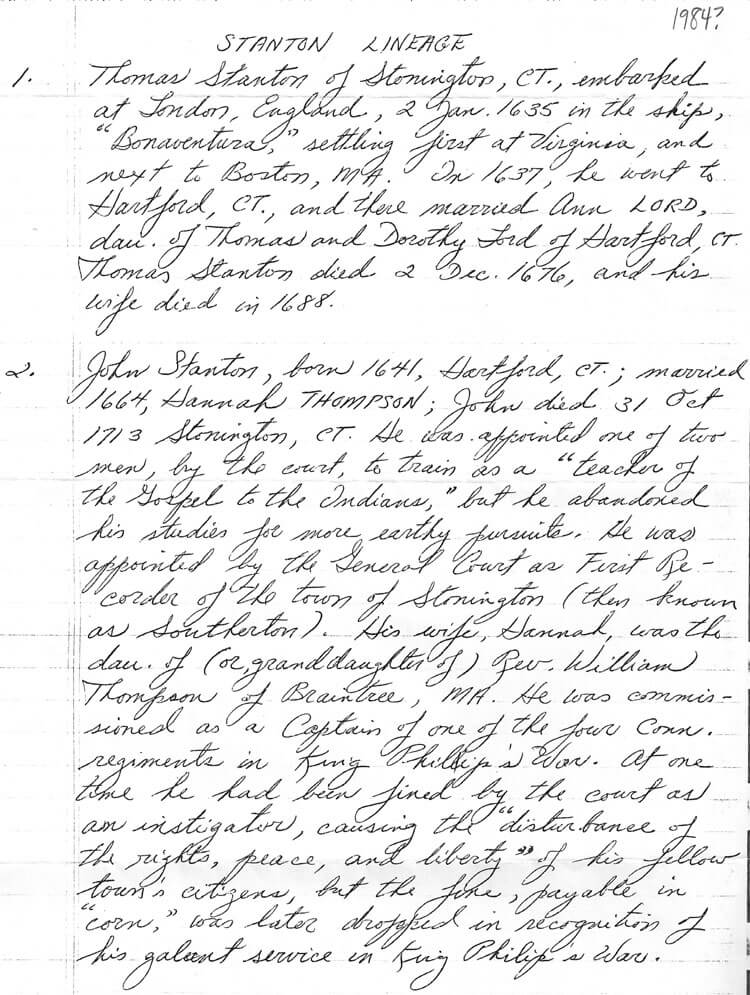 1984?
STANTON LINEAGE
1. Thomas Stanton of Stonington, CT., embarked
at London, England, 2 Jan. 1635 in the ship,
"Bonaventura," settling first at Virginia, and
next to Boston, MA. In 1637, he went to
Hartford, CT., and there married Ann LORD,
dau. of Thomas and Dorothy Lord of Hartford, CT.
Thomas Stanton died 2 Dec. 1676, and his
wife died in 1688.
2. John Stanton, born 1641, Hartford, CT.; married
1664, Hannah THOMPSON; John died 31 Oct
1713 Stonington, CT. He was appointed one of two
men, by the court, to train as a "teacher of
the Gospel to the Indians," but he abandoned
his studies for more earthy pursuits. He was
appointed by the General Court as First Re-
corder of the town of Stonington (then known
as Southerton). His wife, Hannah, was the
dau. of (or, granddaughter of) Rev. William
Thompson of Braintree, MA. He was commis-
sioned as a Captain of one of the four Conn.
regiments in King Phillip's War. At one
time he had been fined by the court as
an instigator, causing the "disturbance of
the rights, peace, and liberty" of his fellow
town's citizens, but the fine, payable in
"corn," was later dropped in recognition of
his galant service in King Philip's War.